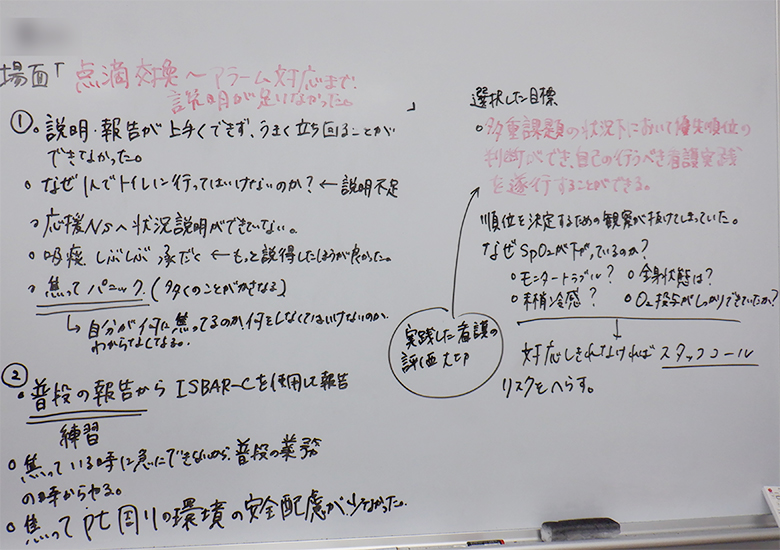 場面「点滴交換〜アラーム対応まで、
説明が足りなかった。」
① 説明・報告が上手くできず、うまく立ち回ることが
できなかった。
なぜ1人でトイレに行ってはいけないのか? ← 説明不足
応援Nsへ状況説明ができていない。
吸痰 しぶしぶ 承だく ← もっと説得したほうが良かった。
焦って パニック (多くのことがかさなる)
↳ 自分が何に焦ってるのか、何をしなくてはいけないのか、
わからなくなる。
② 普段の報告から ISBAR-Cを使用して報告
練習
焦っている時に急にできないから、普段の業務
の時からやる。
焦って pt周りの環境の安全配慮が少なかった。
選択した目標
多重課題の状況下において優先順位の
判断ができ、自己の行うべき看護実践
を遂行することができる。
順位を決定するための観察が抜けてしまっていた。
なぜ SpO₂が下がっているのか?
モニタートラブル? 全身状態は?
末梢冷感? O₂投与がしっかりできていたか?
実践した看護の
評価大切
対応しきれなければ スタッフコール
リスクをへらす。